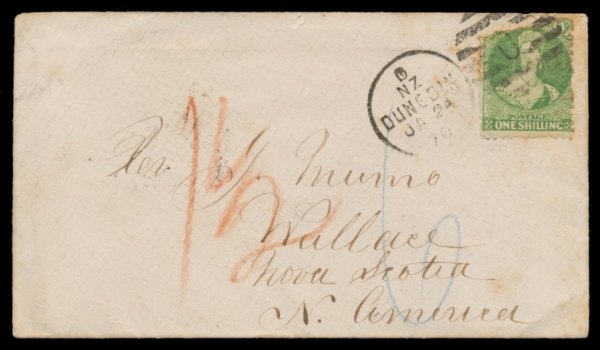 D
NZ
DUNEDIN
JA 24
70
POSTAGE
ONE SHILLING
1/2
6
Rev J. Munro
Wallace
Nova Scotia
N. America